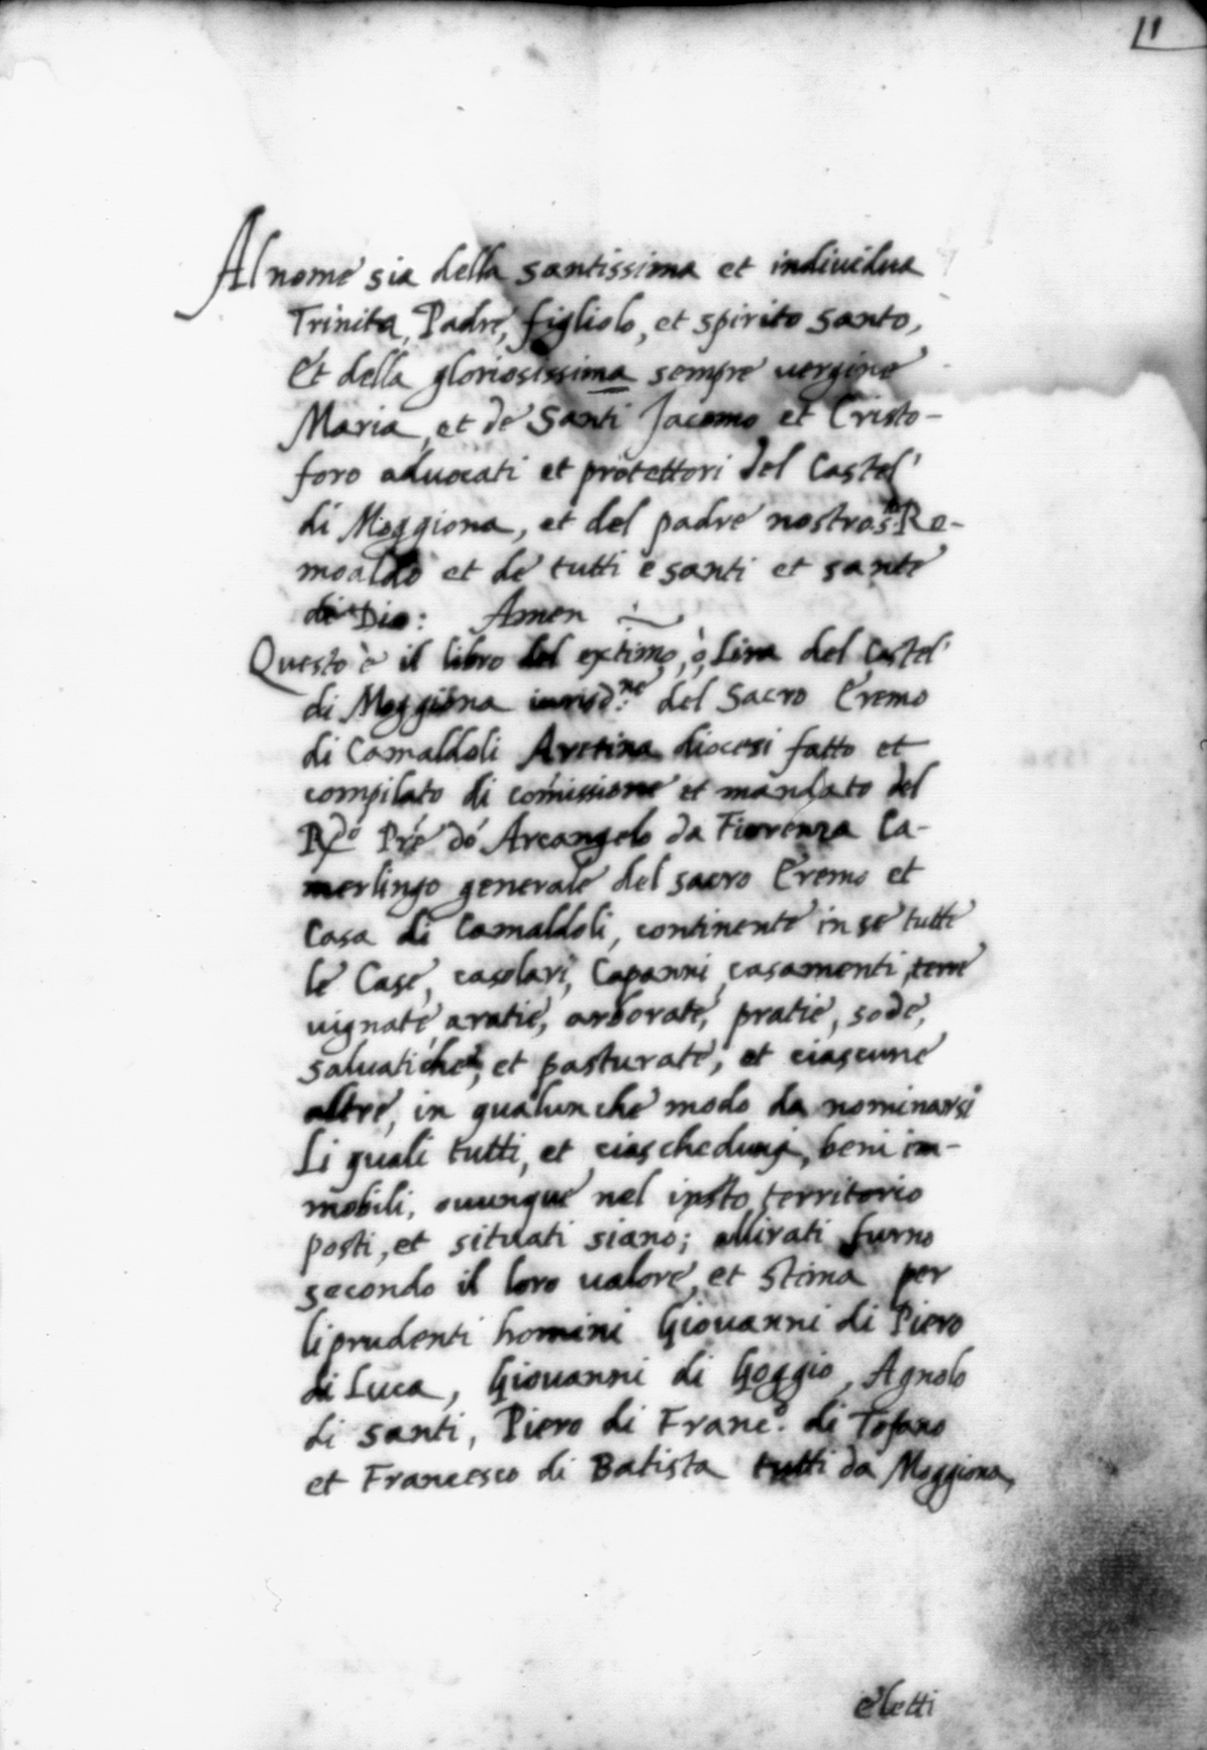 11
Al nome sia della santissima et individua
Trinita, Padre, figliolo, et spirito santo,
Et della gloriosissima sempre vergine
Maria, et de Santi Jacomo et Cristo-
foro aduocati et protettori del Castel
di Moggiona, et del padre nostro s.to Ro-
moaldo et de tutti e santi et sante
di Dio: Amen
Questo è il libro del extimo, ò Lira del Castel
di Moggiona iurisd.ne del Sacro Eremo
di Camaldoli Aretina diocesi fatto et
compilato di comissione et mandato del
R.do Pre do Arcangelo da Fiorenza Ca-
merlingo generale del sacro Eremo et
Casa di Camaldoli, continente in se tutte
le Case, casolari, Capanni, casamenti, terre
uignate aratie, arborate, pratie, sode,
saluatiche, et pasturate, et ciascune
altre, in qualunche modo da nominarsi
Li quali tutti, et ciascheduni, beni im-
mobili, ouunque nel ipsto territorio
posti, et situati siano; allirati furno
secondo il loro ualore, et stima per
li prudenti homini Giouanni di Piero
di Luca, Giouanni di Goggio, Agnolo
di santi, Piero di Franc.o di Tofano
et Francesco di Batista tutti da Moggiona,
eletti